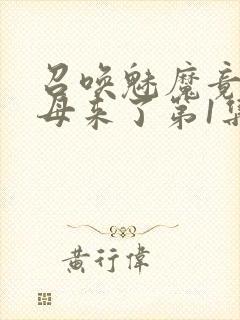 召唤魅魔竟
母来了第1集
黄行偉